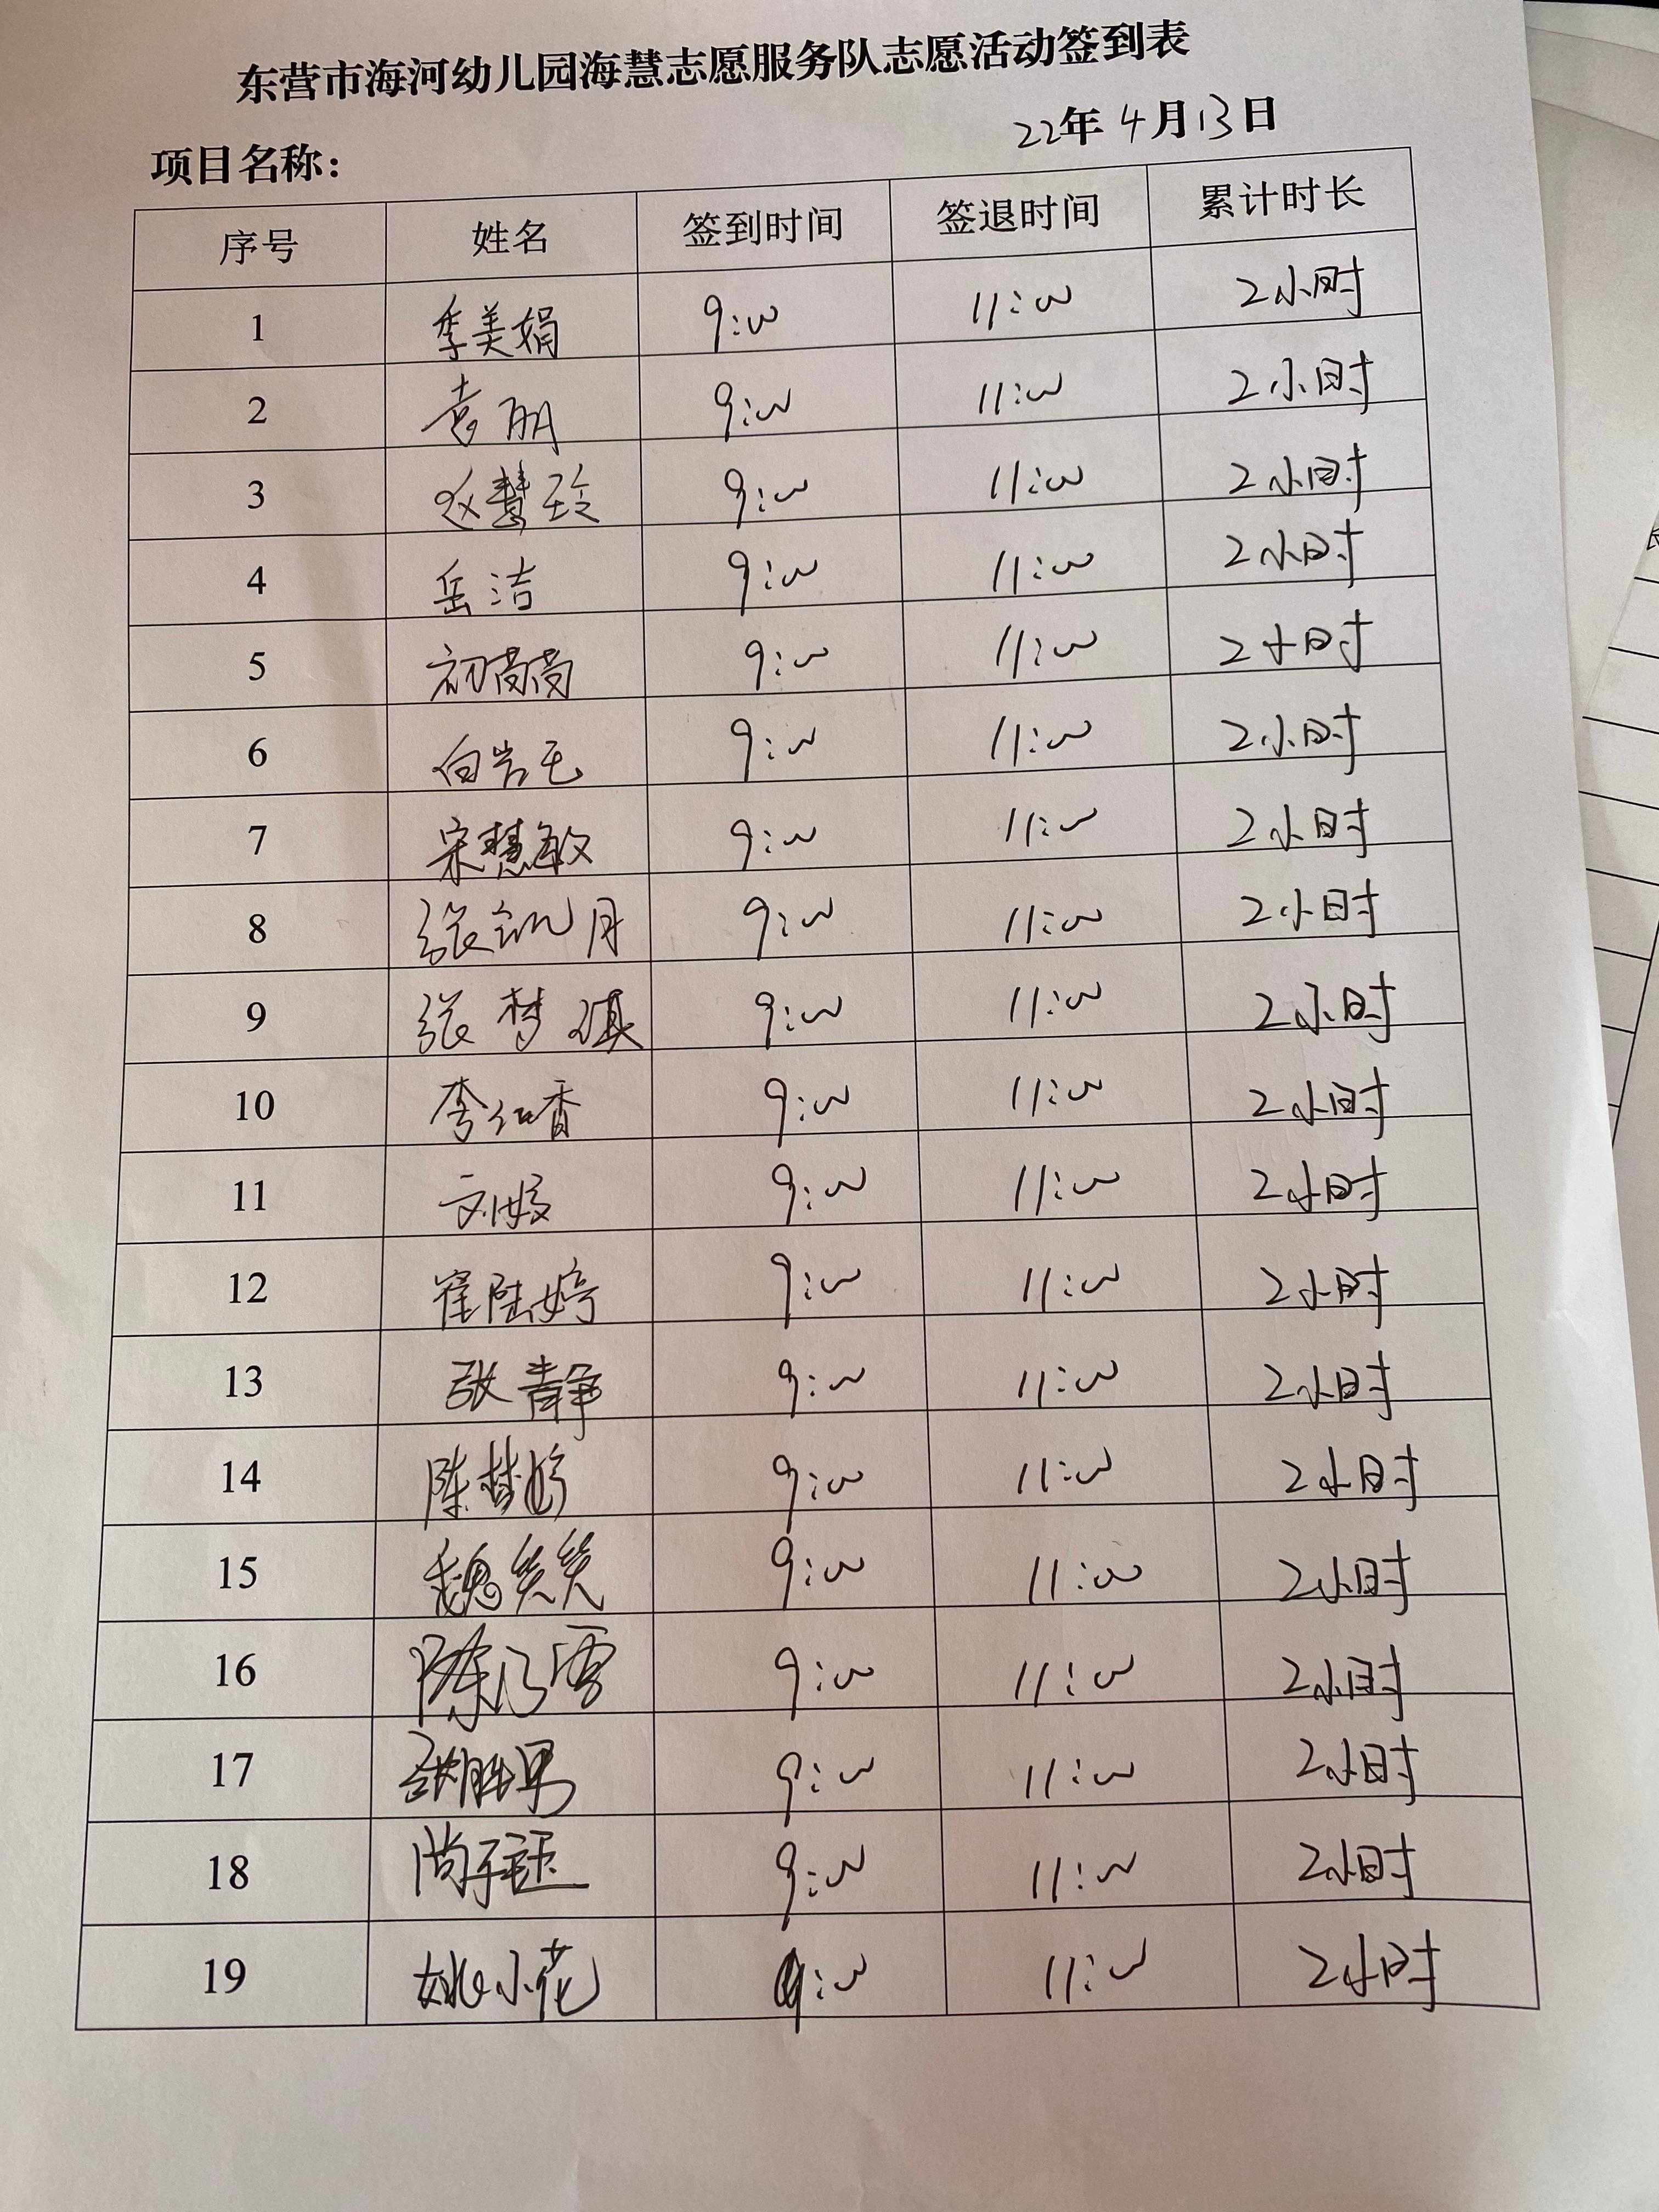 东营市海河幼儿园海慧志愿服务队志愿活动签到表
22年4月13日
项目名称：
序号 姓名 签到时间 签退时间 累计时长
1 季美娟 9:00 11:00 2小时
2 袁丽 9:00 11:00 2小时
3 赵慧玲 9:00 11:00 2小时
4 岳洁 9:00 11:00 2小时
5 初茜茜 9:00 11:00 2小时
6 9:00 11:00 2小时
7 宋慧敏 9:00 11:00 2小时
8 张凯月 9:00 11:00 2小时
9 张梦琪 9:00 11:00 2小时
10 李红香 9:00 11:00 2小时
11 刘婷 9:00 11:00 2小时
12 崔陆婷 9:00 11:00 2小时
13 张静 9:00 11:00 2小时
14 陈梦婷 9:00 11:00 2小时
15 魏笑笑 9:00 11:00 2小时
16 陈乃雪 9:00 11:00 2小时
17 胜男 9:00 11:00 2小时
18 尚子钰 9:00 11:00 2小时
19 姚小花 9:00 11:00 2小时